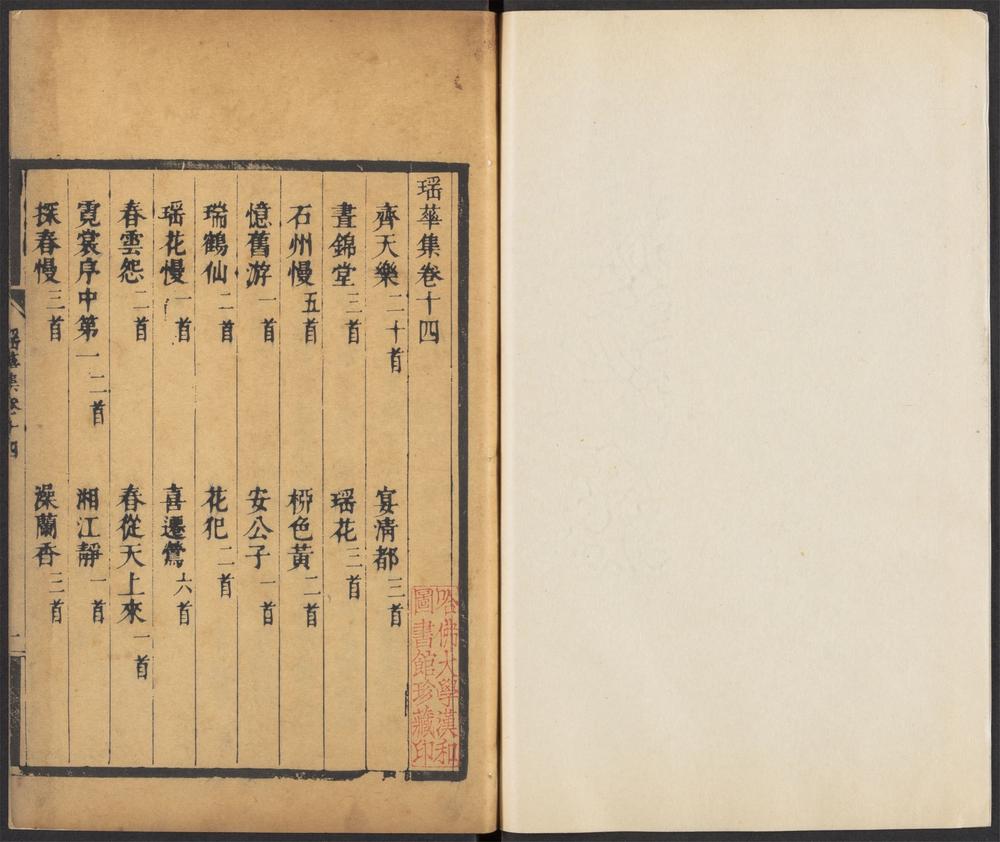 瑶華集卷十四
齊天樂二十首 宴清都三首
晝錦堂三首 瑶花三首
石州慢五首 柳色黃二首
憶舊游一首 安公子一首
瑞鶴仙二首 花犯二首
瑶花慢一首 喜遷鶯六首
春雲怨二首 春從天上來一首
霓裳序中第一二首 湘江靜一首
探春慢三首 澡蘭香三首
瑶華集卷十四
一
哈佛大學漢和
圖書館珍藏印